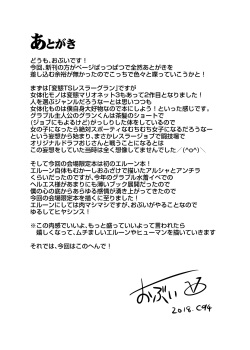 あとがき
どうも、おぶいです！
今回、新刊の方がページぱっつぱつで全然あとがきを
差し込む余裕が無かったのでこっちで色々と喋っていこうかと！
まずは「変態TSレスラーグラン」ですが
女体化モノは変態マリオネット3もあって2作目となりました！
人を選ぶジャンルだろうなーとは思いつつも
女体化ものは僕自身大好物なので本にしよう！といった感じです。
グラブル主人公のグランくんは茶髪のショートで
(ジョブにもよるけど)がっしりした体をしているので
女の子になったら絶対スポーティなむちむち女子になるだろうなー
という妄想から始まり、まさかレスラージョブで闘技場で
オリジナルドラフおじさんと戦うことになるとは
この妄想をしていた当時は全く想像してませんでした／(^o^)＼
そして今回の会場限定本は初のエルーン本！
エルーン自体もむかーしおふざけで描いたアルシャとアンチラ
くらいだったのですが、今年のグラブル水着イベでの
ヘルエス様があまりにも薄いブック展開だったので
僕の心の底からあらゆる感情が湧き上がってきたので
今回の会場限定本を描くに至りました！
エルーンにしては肉マシマシですが、おぶいがやることなので
ゆるしてヒヤシンス！
※この肉感でいいよ、もっと盛っていいよって言われたら
嬉しくなって、ムチましいエルーンやヒューマンを描いていきます
それでは、今回はこのへんで！
おぶい
2018. C94